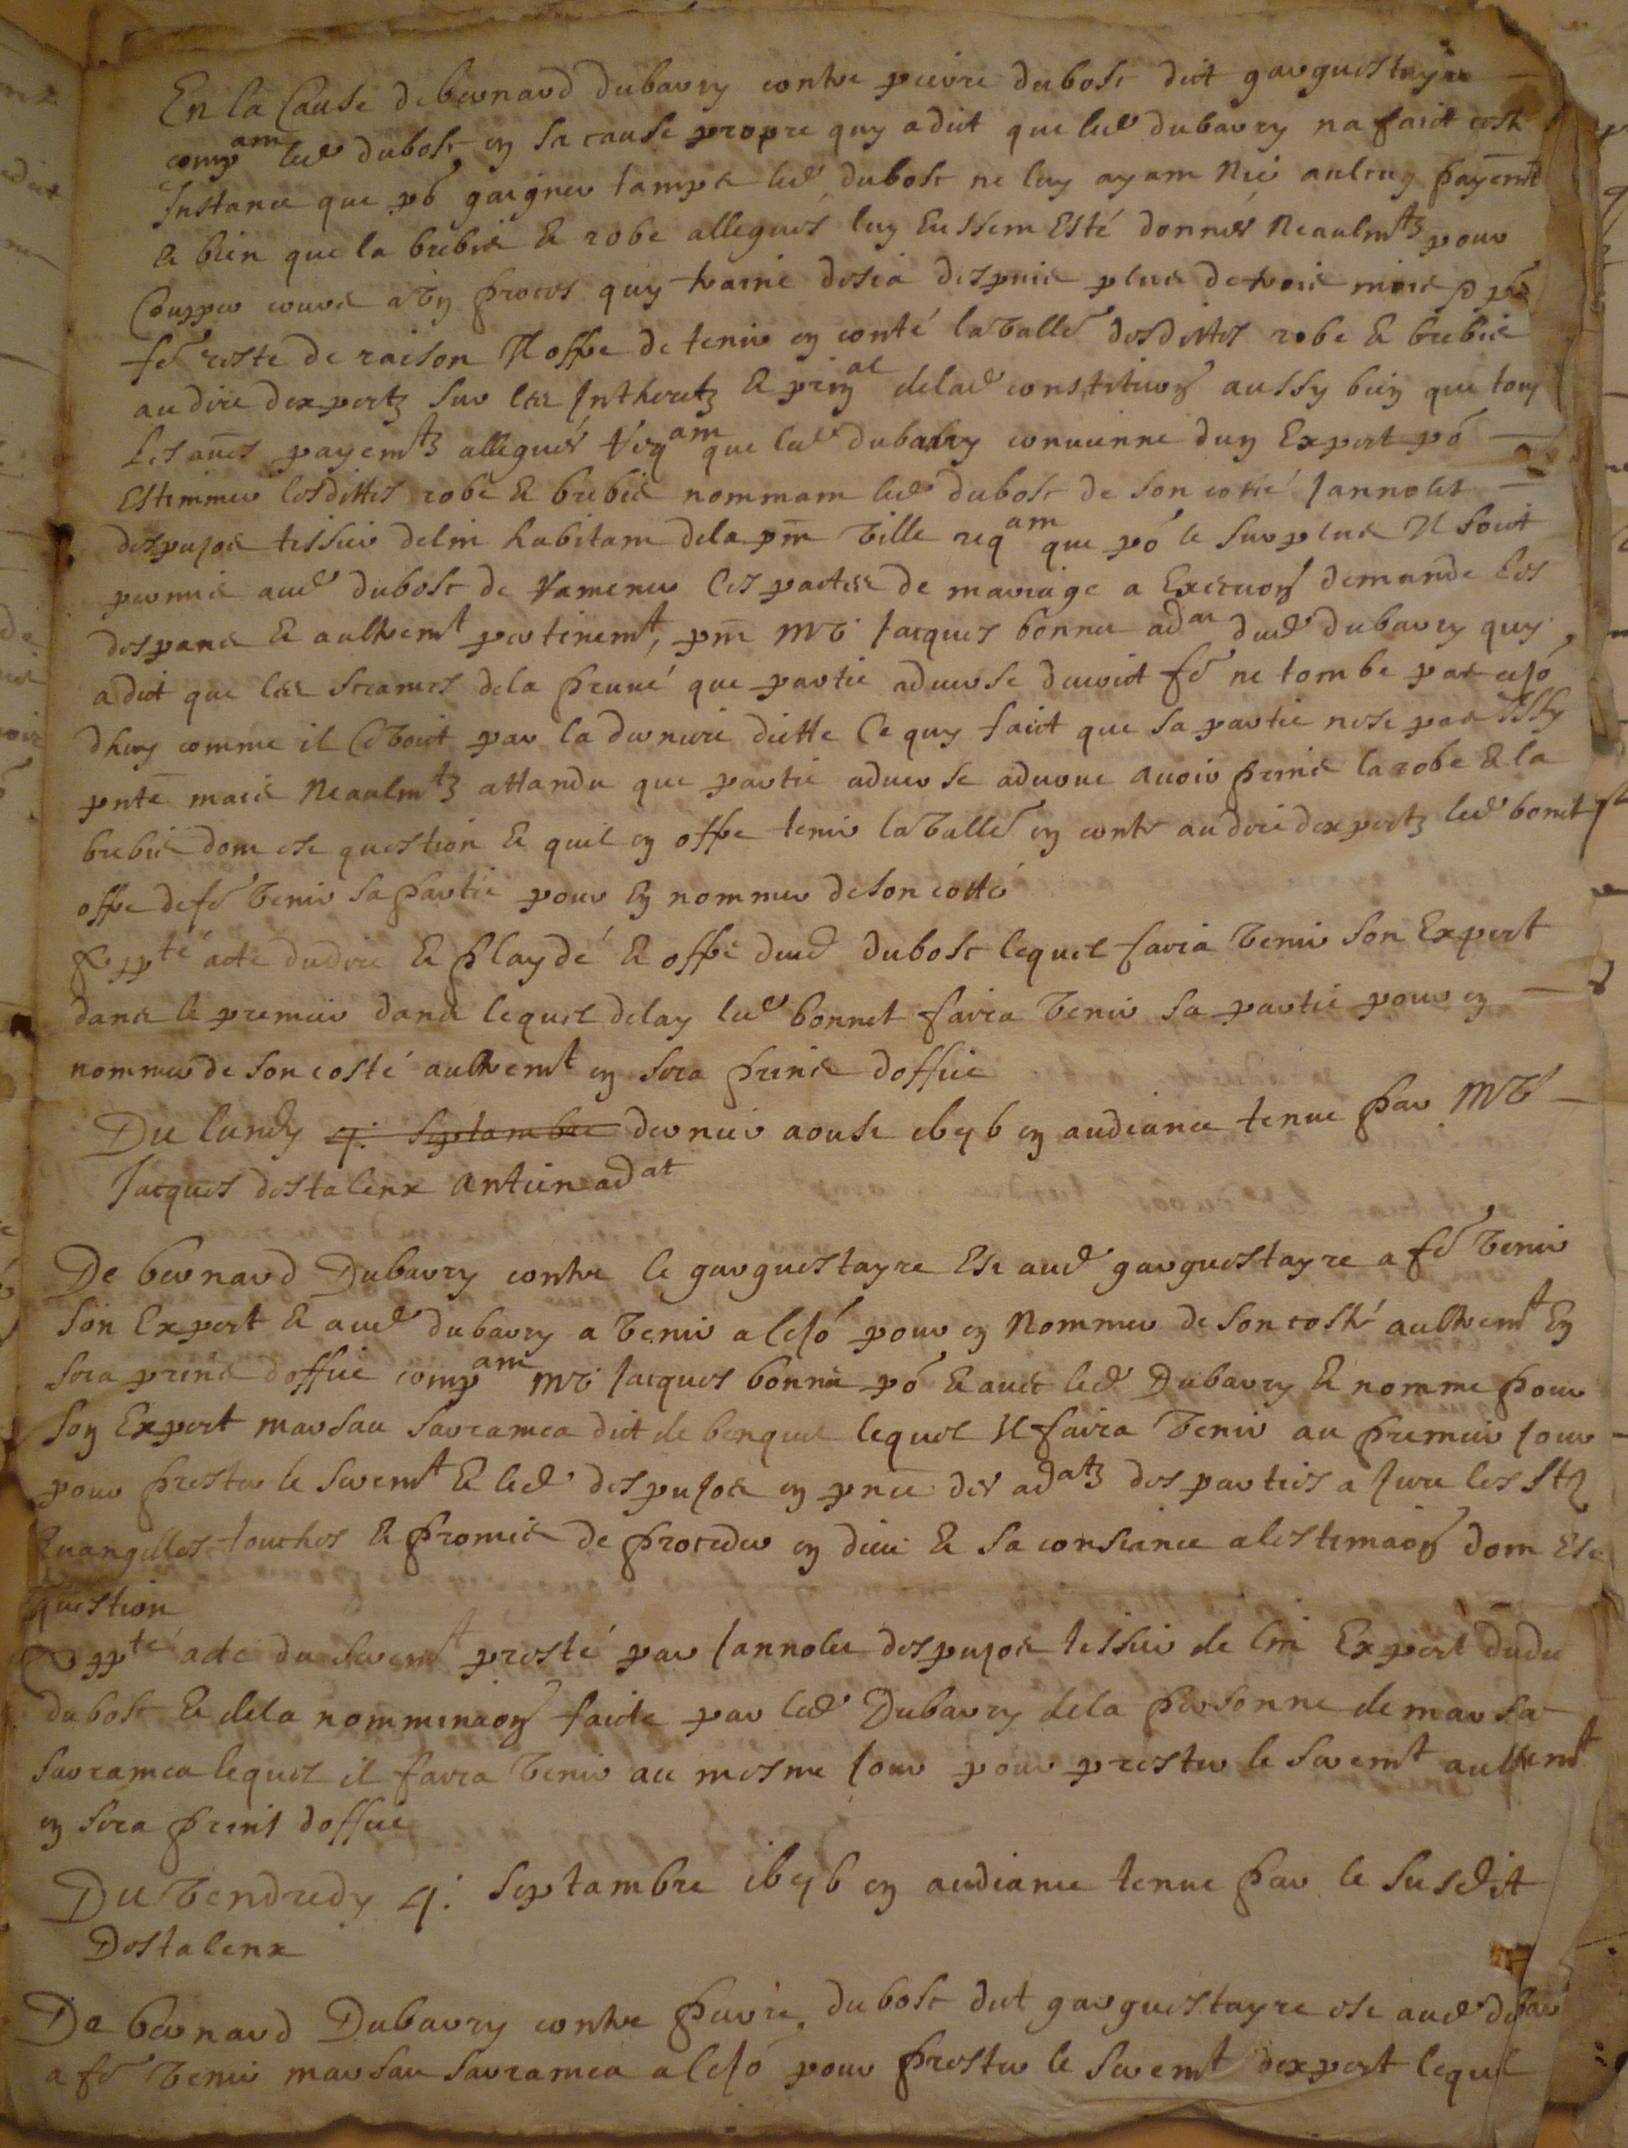 En la Cause de bernard dubarry contre peirre dubosc dict garguestayre
comp^am led dubosc en sa cause propre quy a dict que led dubarry na faict cest
Instance que po gaigner tamps led dubosc ne luy ayam Nié aulcung payemt
& bien que la brebis & robe allegués luy Eussem Esté donnés Neaulmtz pour
Coupper cours a Un proces quy traine desia despuis plus de trois mois
fe reste de raison Il offre de tenir en conté la Valleur desdittes robe & brebis
au dire dexpertz sur les Intheretz & prin^al delad constitution aussy bien que tous
Les aues payemtz allegués Req^am que led dubarry convienne dun Expert po
Estimmer lesdittes robe & brebis nommam led dubosc de son costé Jannolet
despujos tissier de lin habitam dela pnt Ville req^am que po le surplus Il soict
permis aud dubosc de Ramener les pactes de mariage a Execuon demande les
despans & aultremt pertinemt, pnt Me Jacques bonnet ad^at dud dubarry quy
a dict que les seramet dela preuue que partie aduerse deuoict fe ne tombe pas
dhuy comme il se Voict par la derniere dictte Ce quy faict que sa partie nese pas Issy
pnte mais Neaulmtz attandu que partie aduerse aduoue Avoir prins la robe & la
brebis dom ese question & quil en offre tenir la Valleur en conte au dire dexpertz led bonet
offre de fe Venir sa partie pour En nommer de son costé
app^té acte du dire & playdé & offre dud dubosc lequel faira Venir son Expert
dans le premier dans lequel delay led bonnet faira Venir sa partie pour en
nommer de son costé aultremt en sera prins doffice
Du lundy 4: septambre dernier aoust ibcyb en audiance tenue par Me
Jacques destalenx Antien ad^at
De bernard Dubarry contre le garguestayre Ese aud garguestayre a fe Venir
son Expert & aud dubarry a Venir a cejo pour en Nommer de son costé aultremt En
sera prins doffice comp^am Me Jacques bonnet po & auec led Dubarry & nomme pour
son Expert marsau sarramea dict de benquet lequel Il faira Venir au premier Jour
pour prester le seremt & led despujos en pnce des ad^atz des parties a Jure les stz
Euangilles touches & promis de proceder en dieu & sa consiance a lestimaon dom Ese
question
app^té acte du seremt presté par Jannolet despujos tissier de lin Expert dudit
dubosc & dela nomminaon faicte par led Dubarry dela personne de marsau
sarramea lequel il faira Venir au mesme Jour pour prester le seremt aultremt
en sera prins doffice
Du Vendredy 4: septambre ibcyb en audiance tenue par le susdit
Destalenx
De bernard Dubarry contre peirre dubosc dict garguestayre ese aud dubar
a fe Venir marsau sarramea a cejo pour prester le seremt dexpert lequel